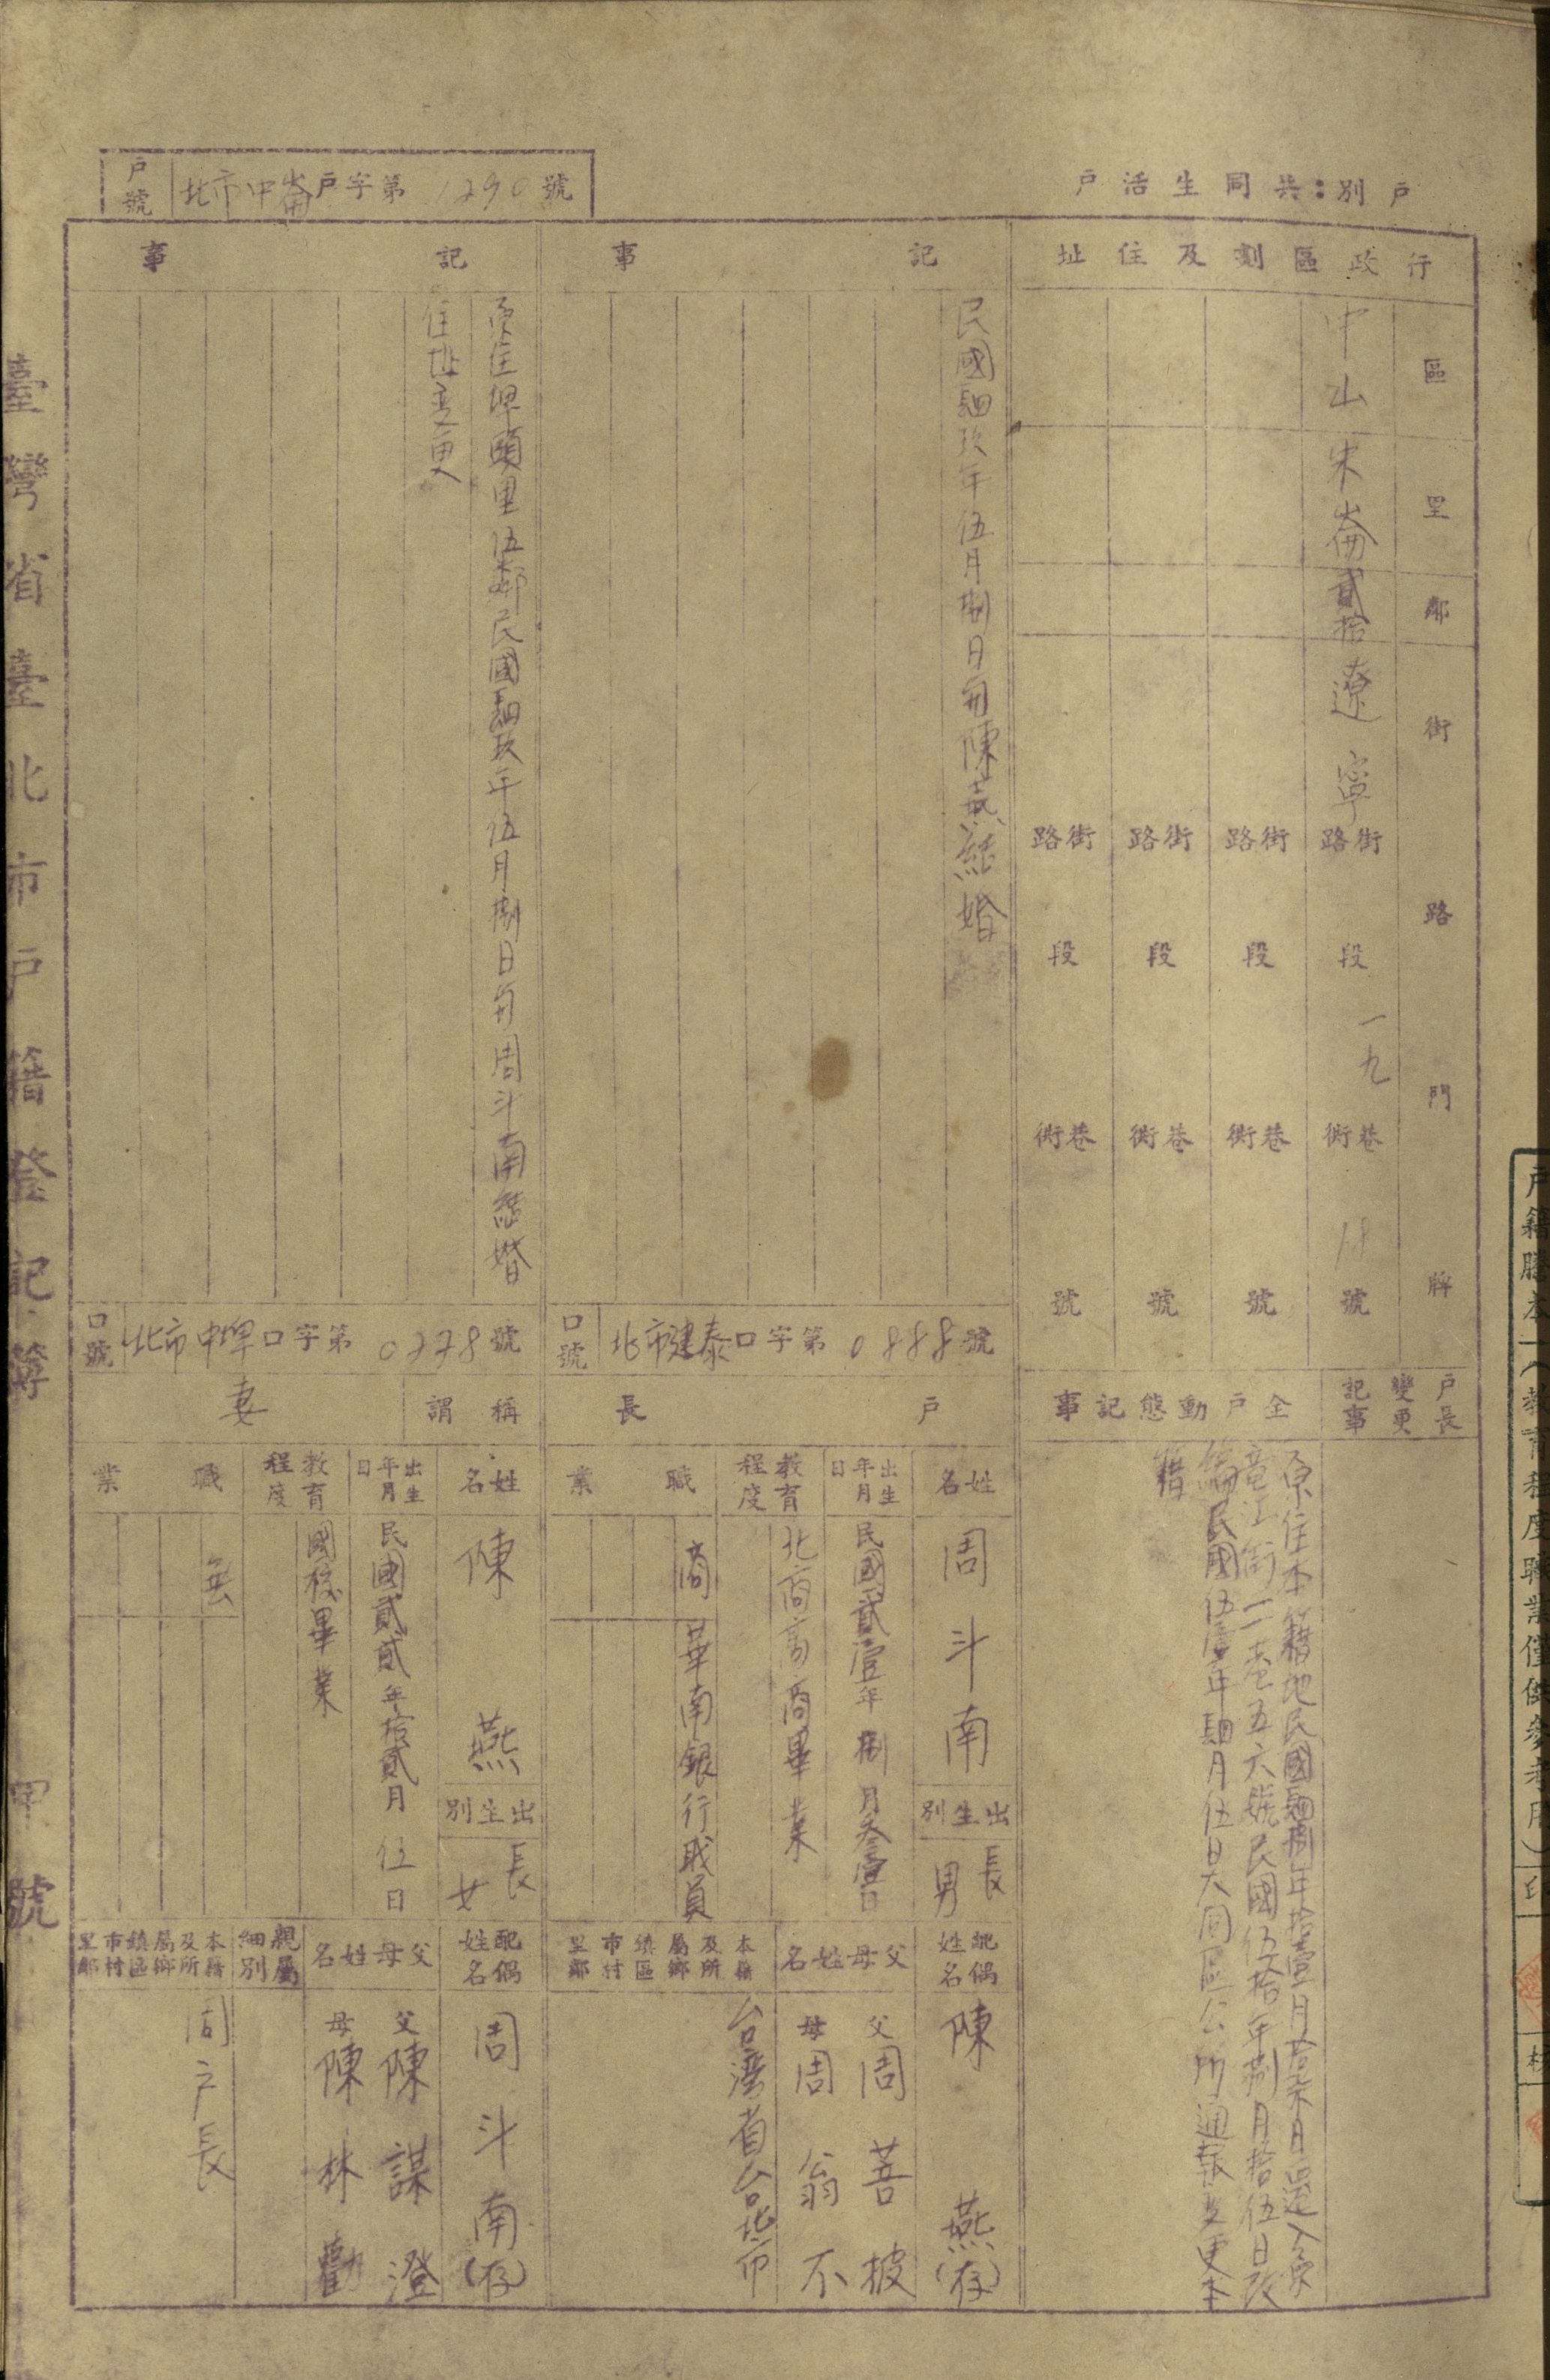 戶籍謄本(教育程度職業僅供參考用)印
戶別:共同生活戶
行政區劃及住址
區
里
鄰
街路門牌
中山
朱崙
貳拾
遼寧
街路
段
一九
巷衖
18
號
街路
段
巷衖
號
街路
段
巷衖
號
街路
段
巷衖
號
戶長變更記事
全戶動態記事
原住本籍地民國肆捌年拾壹月
龍江街一一巷五六號民國伍拾年捌月拾伍日改
編民國伍壹年肆月伍日大同區公所通報變更本
籍
記事
民國肆玖年伍月捌日與陳燕結婚
口號
北市建泰口字第0888號
戶長
姓名
周斗南
出生別
長男
出生年月日
民國貳壹年捌月叁壹日
教育程度
北商高商畢業
職業
商
華南銀行職員
配偶姓名
陳燕(存)
父母姓名
父周菩披
母周翁不
本籍及所屬鄉鎮區市村里鄰
台灣省台北市
戶號
北市中崙戶字第1290號
記事
原住埤頭里伍鄰民國肆玖年伍月捌日與周斗南結婚
住址變更
口號
北市中埤口字第0778號
稱謂
妻
姓名
陳燕
出生別
長女
出生年月日
民國貳貳年拾貳月伍日
教育程度
國校畢業
職業
無
配偶姓名
周斗南(存)
父母姓名
父陳謀澄
母陳林勸
親屬細別
本籍及所屬鄉鎮區市村里鄰
同戶長
臺灣省臺北市戶籍登記簿
甲號